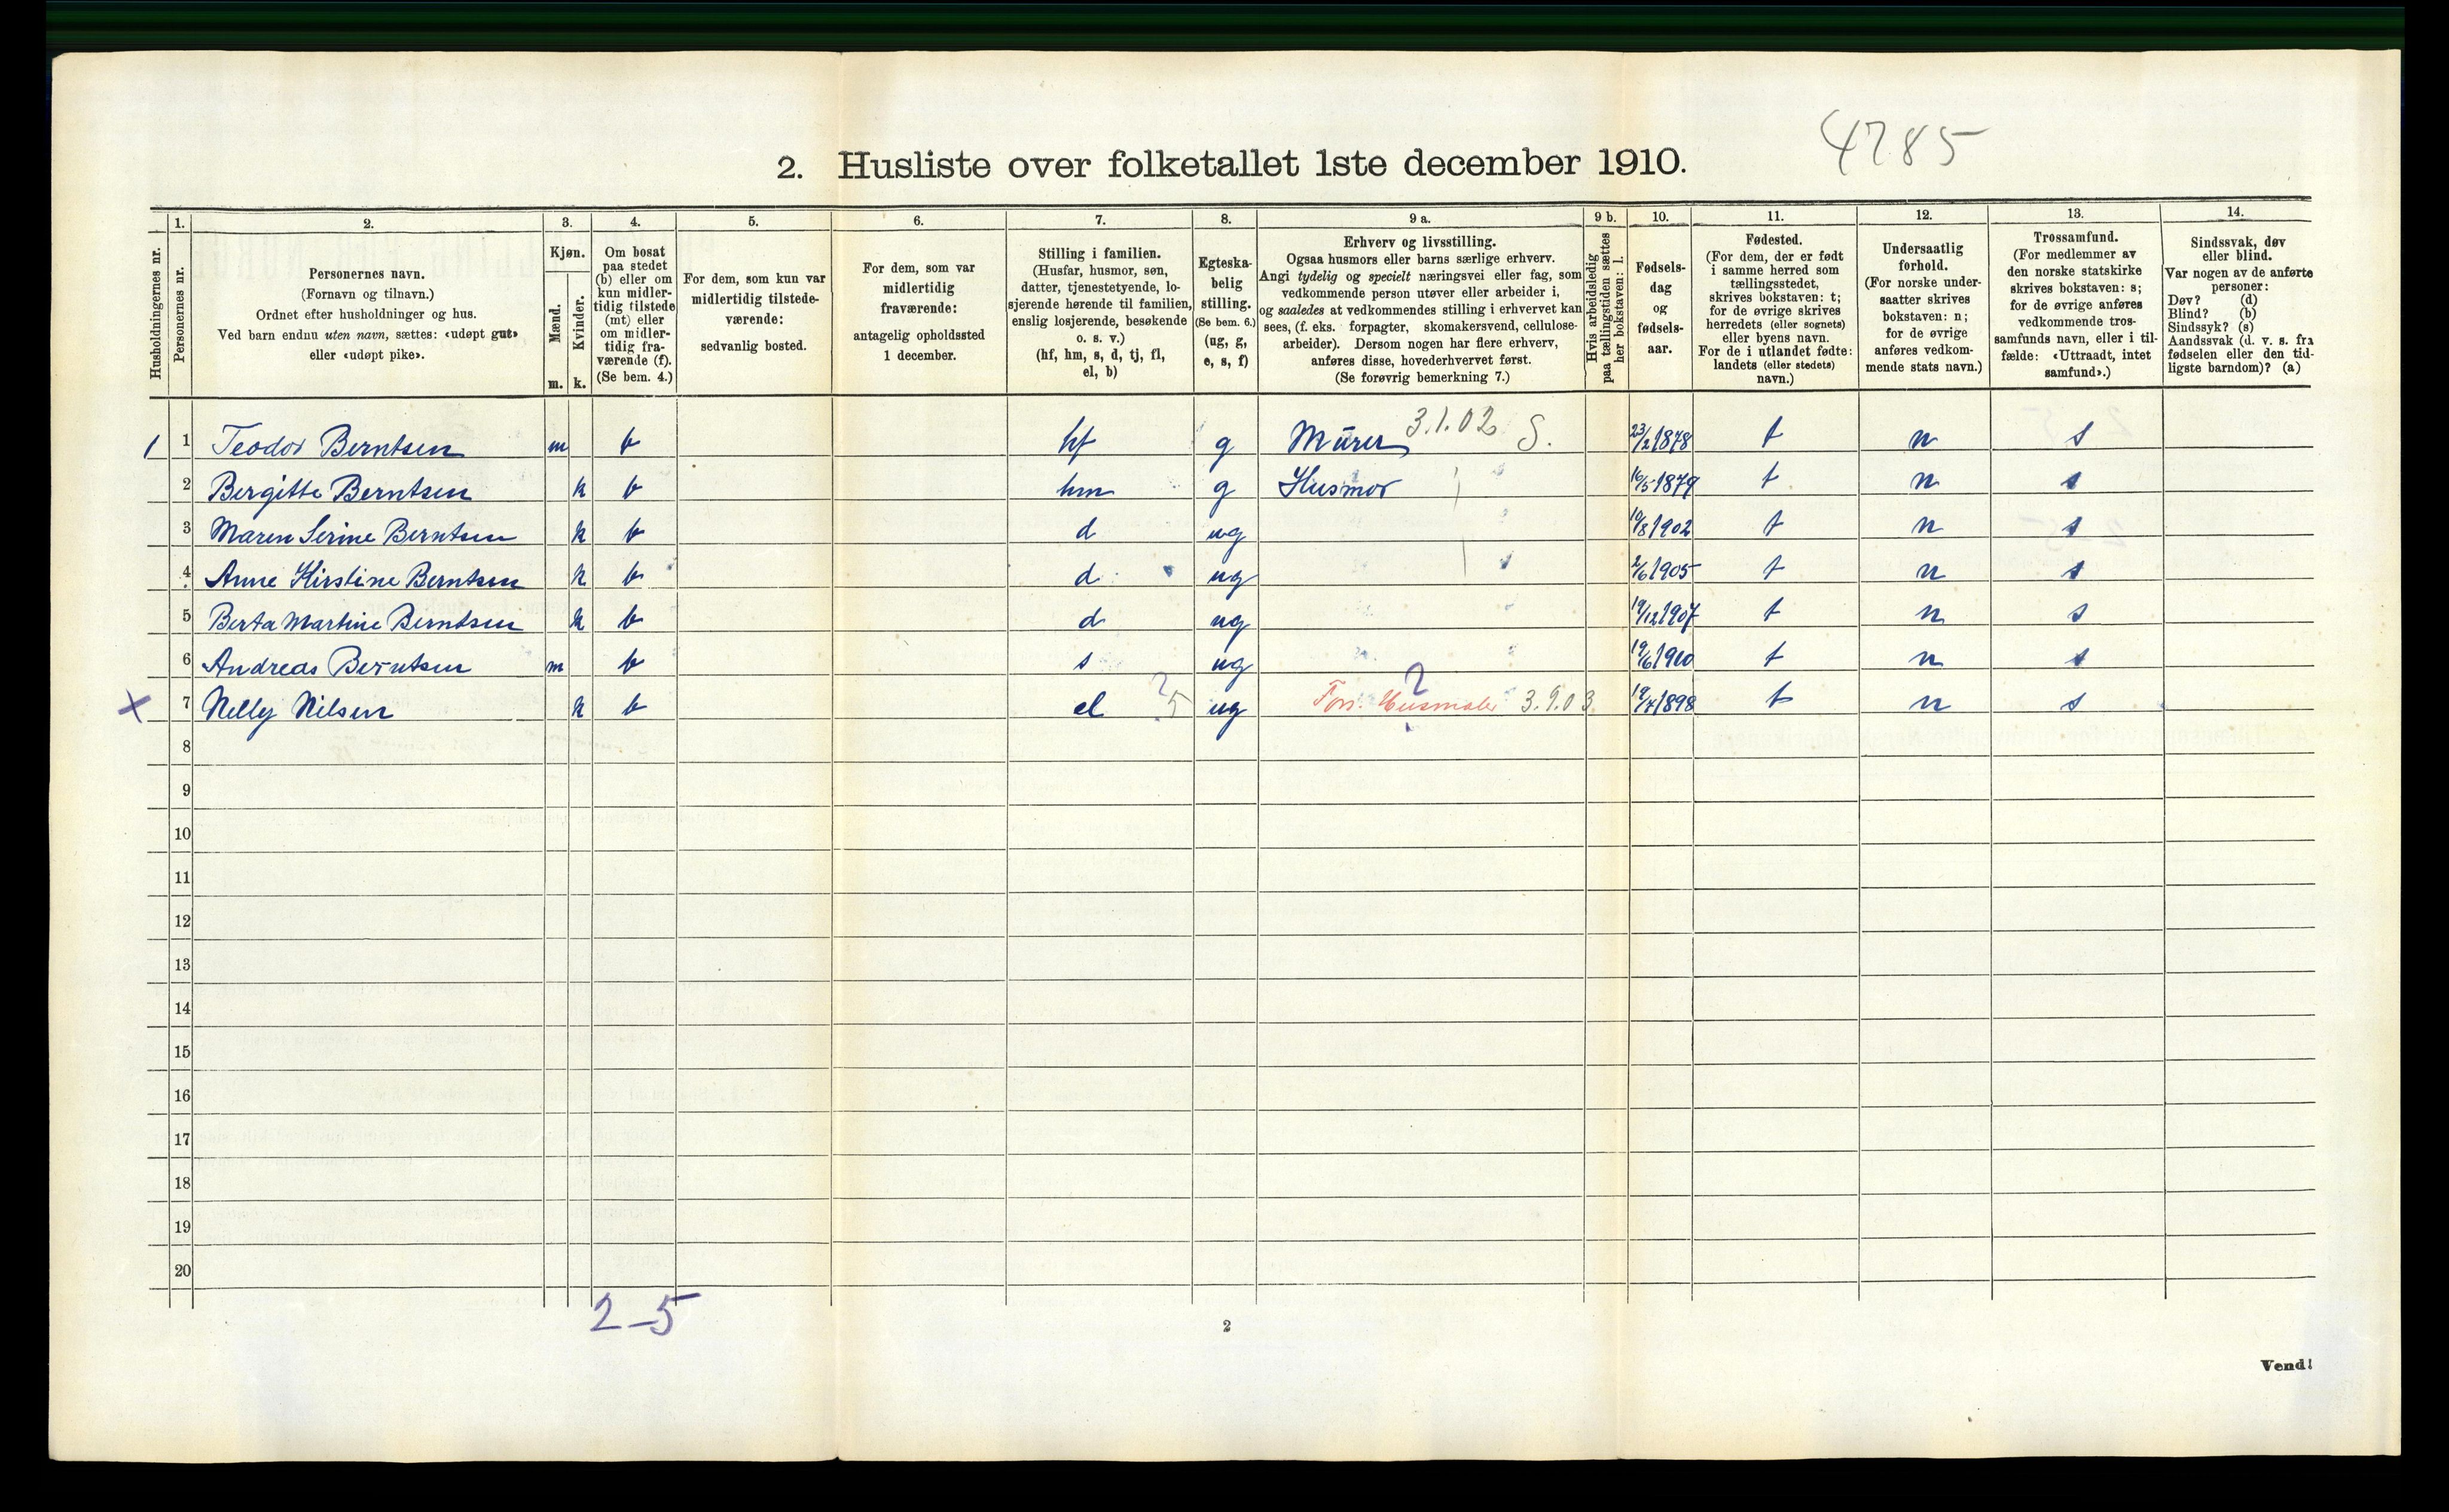 4785
2. Husliste over folketallet 1ste december 1910.
Husholdningernes nr.
1.
Personernes nr.
2.
Personernes navn.
(Fornavn og tilnavn.)
Ordnet efter husholdninger og hus.
Ved barn endnu uten navn, sættes: «udøpt gut»
eller «udøpt pike».
3.
Kjøn.
Mænd.
m.
Kvinder.
k.
4.
Om bosat
paa stedet
(b) eller om
kun midler-
tidig tilstede
(mt) eller
om midler-
tidig fra-
værende (f).
(Se bem. 4.)
5.
For dem, som kun var
midlertidig tilstede-
værende:
sedvanlig bosted.
6.
For dem, som var
midlertidig
fraværende:
antagelig opholdssted
1 december.
7.
Stilling i familien.
(Husfar, husmor, søn,
datter, tjenestetyende, lo-
sjerende hørende til familien,
enslig losjerende, besøkende
o. s. v.)
(hf, hm, s, d, tj, fl,
el, b)
8.
Egteska-
belig
stilling.
(Se bem. 6.)
(ug, g,
e, s, f)
9 a.
Erhverv og livsstilling.
Ogsaa husmors eller barns særlige erhverv.
Angi tydelig og specielt næringsvei eller fag, som
vedkommende person utøver eller arbeider i,
og saaledes at vedkommendes stilling i erhvervet kan
sees, (f. eks. forpagter, skomakersvend, cellulose-
arbeider). Dersom nogen har flere erhverv,
anføres disse, hovederhvervet først.
(Se forøvrig bemerkning 7.)
9 b.
Hvis arbeidsledig
paa tællingstiden sættes
her bokstaven: l.
10.
Fødsels-
dag
og
fødsels-
aar.
11.
Fødested.
(For dem, der er født
i samme herred som
tællingsstedet,
skrives bokstaven: t;
for de øvrige skrives
herredets (eller sognets)
eller byens navn.
For de i utlandet fødte:
landets (eller stedets)
navn.)
12.
Undersaatlig
forhold.
(For norske under-
saatter skrives
bokstaven: n;
for de øvrige
anføres vedkom-
mende stats navn.)
13.
Trossamfund.
(For medlemmer av
den norske statskirke
skrives bokstaven: s;
for de øvrige anføres
vedkommende tros-
samfunds navn, eller i til-
fælde: «Uttraadt, intet
samfund».)
14.
Sindssvak, døv
eller blind.
Var nogen av de anførte
personer:
Døv? (d)
Blind? (b)
Sindssyk? (s)
Aandssvak (d. v. s. fra
fødselen eller den tid-
ligste barndom)? (a)
1 1 Teodor Berntsen m b hf g Murer 3.1.02 S. 23/2 1878 t n s
2 Bergitte Berntsen k b hm g Husmor 16/5 1879 t n s
3 Maren Serine Berntsen k b d ug 10/8 1902 t n s
4 Anne Kirstine Berntsen k b d ug 2/6 1905 t n s
5 Berta Martine Berntsen k b d ug 19/12 1907 t n s
6 Andreas Berntsen m b s ug 19/6 1910 t n s
x 7 Nelly Nilsen k b el ? 5 ug ? 3.9.03 1898 t n s
8
9
10
11
12
13
14
15
16
17
18
19
20
2-5
2
Vend!